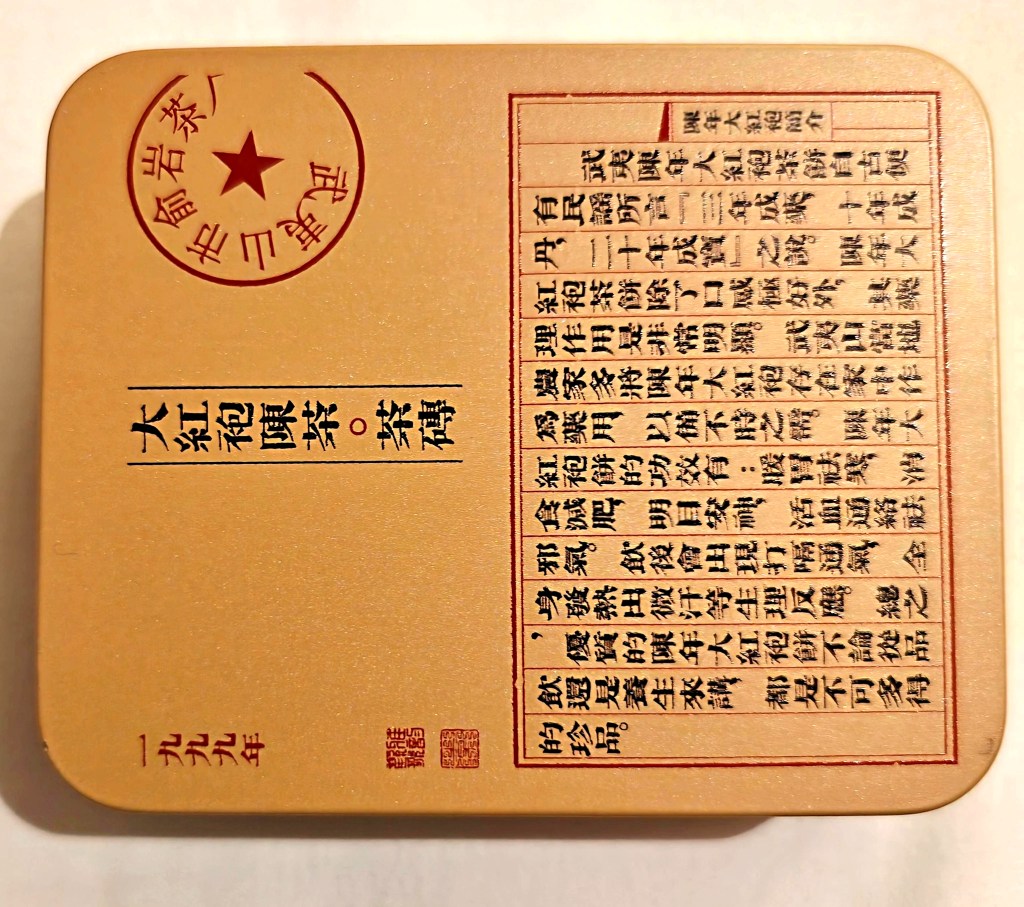 武夷山市俞岩茶厂
大紅袍陳茶。茶磚
一九九九年
陳年大紅袍簡介
武夷陳年大紅袍茶餅自古便
有民謡所言『三年成藥,十年成
丹,二十年成寶』之說。陳年大
紅袍茶餅除了口感極好外,具藥
理作用是非常明顯。武夷山當地
農家多將陳年大紅袍存在家中作
爲藥用,以備不時之需。陳年大
紅袍餅的功效有:暖胃祛寒,消
食減肥,明目安神,活血通絡祛
邪氣。飲後會出現打嗝通氣,全
身發熱出微汗等生理反應。總之
,優質的陳年大紅袍餅不論從品
飲還是養生來講,都是不可多得
的珍品。